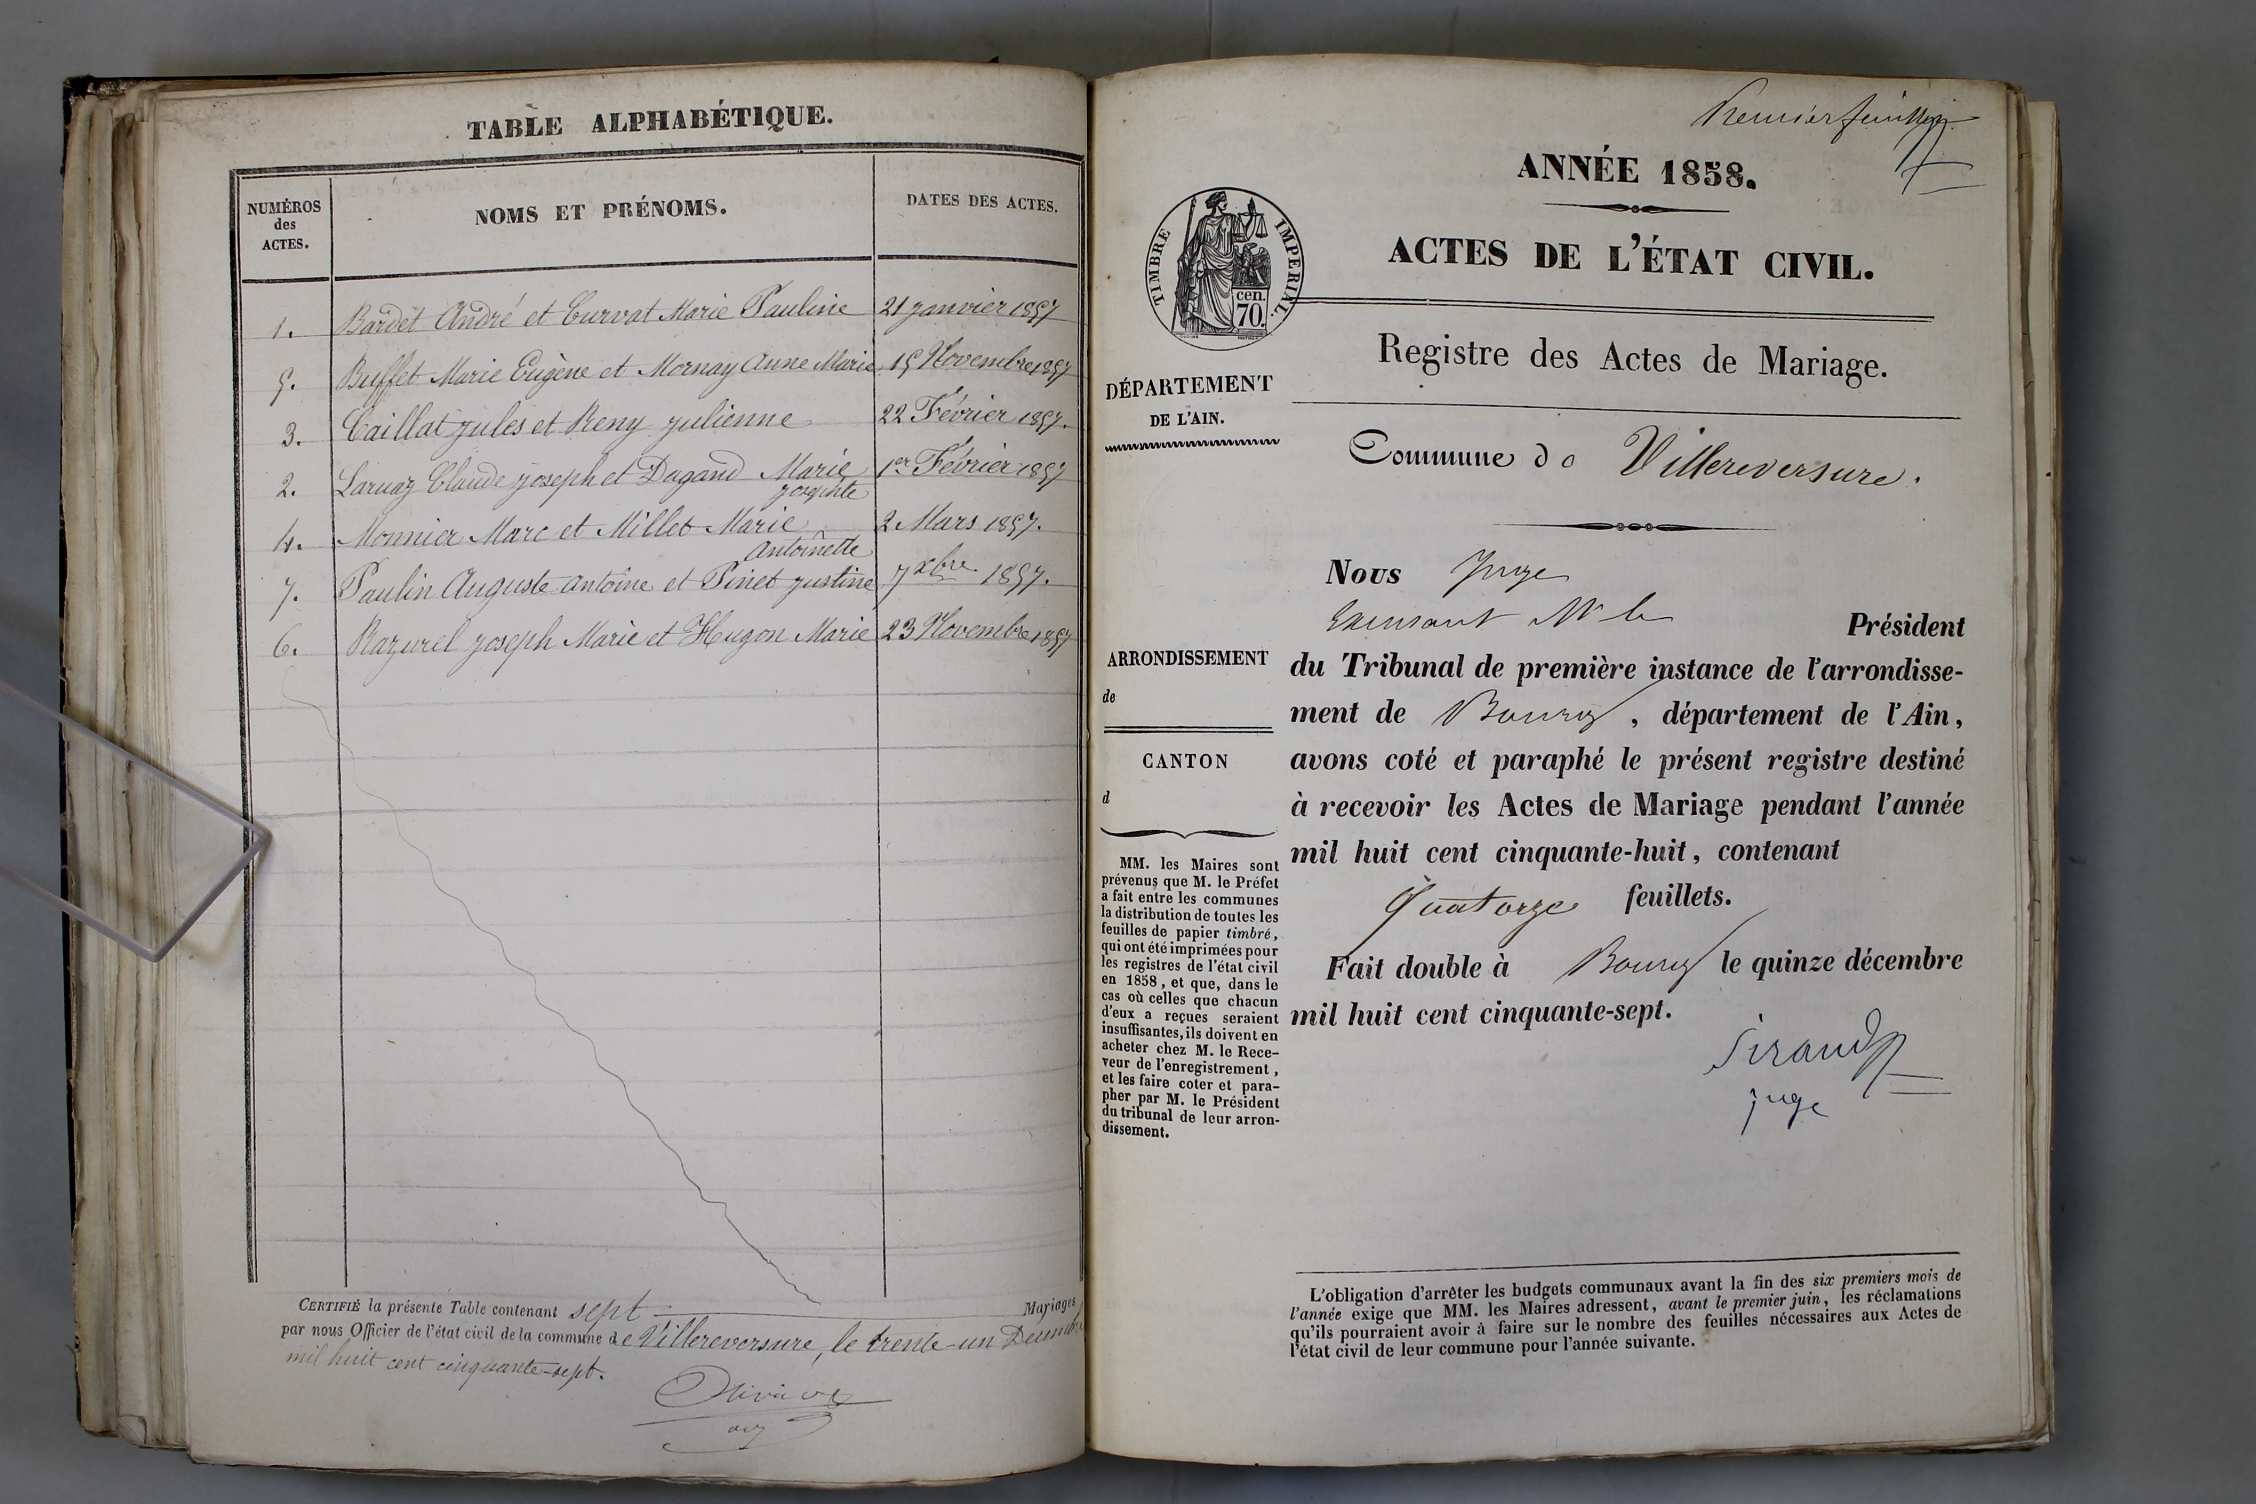 TABLE ALPHABÉTIQUE.
NUMÉROS
des
ACTES.
NOMS ET PRÉNOMS.
DATES DES ACTES.
1. Bardet André et Curvat Marie Pauline 21 janvier 1857
5. Buffet Marie Eugène et Mornay Anne Marie 15 Novembre 1857
3. Caillat jules et Reny julienne 22 Février 1857.
2. Larnaz Claude joseph et Dagand Marie 1er Février 1857
josephte
4. Monnier Marc et Millet Marie 2 Mars 1857.
Antoinette
7. Paulin Auguste antoine et Pinet justine 7 xbre 1857.
6. Razurel joseph Marie et Hugon Marie 23 Novembre 1857
CERTIFIÉ la présente Table contenant sept Mariages
par nous Officier de l'état civil de la commune de Villereversure, le trente-un Décembre
mil huit cent cinquante-sept.
Premier feuillet
ANNÉE 1858.
ACTES DE L'ÉTAT CIVIL.
TIMBRE IMPERIAL.
cen.
70.
Registre des Actes de Mariage.
DÉPARTEMENT
DE L'AIN.
Commune de Villereversure.
Nous Juge
Président
ARRONDISSEMENT
de
CANTON
d
du Tribunal de première instance de l'arrondisse-
ment de Bourg, département de l'Ain,
avons coté et paraphé le présent registre destiné
à recevoir les Actes de Mariage pendant l'année
mil huit cent cinquante-huit, contenant
Quatorze feuillets.
Fait double à Bourg le quinze décembre
mil huit cent cinquante-sept.
Sirand
juge
MM. les Maires sont
prévenus que M. le Préfet
a fait entre les communes
la distribution de toutes les
feuilles de papier timbré,
qui ont été imprimées pour
les registres de l'état civil
en 1858, et que, dans le
cas où celles que chacun
d'eux a reçues seraient
insuffisantes, ils doivent en
acheter chez M. le Rece-
veur de l'enregistrement,
et les faire coter et para-
pher par M. le Président
du tribunal de leur arron-
dissement.
L'obligation d'arrêter les budgets communaux avant la fin des six premiers mois de
l'année exige que MM. les Maires adressent, avant le premier juin, les réclamations
qu'ils pourraient avoir à faire sur le nombre des feuilles nécessaires aux Actes de
l'état civil de leur commune pour l'année suivante.